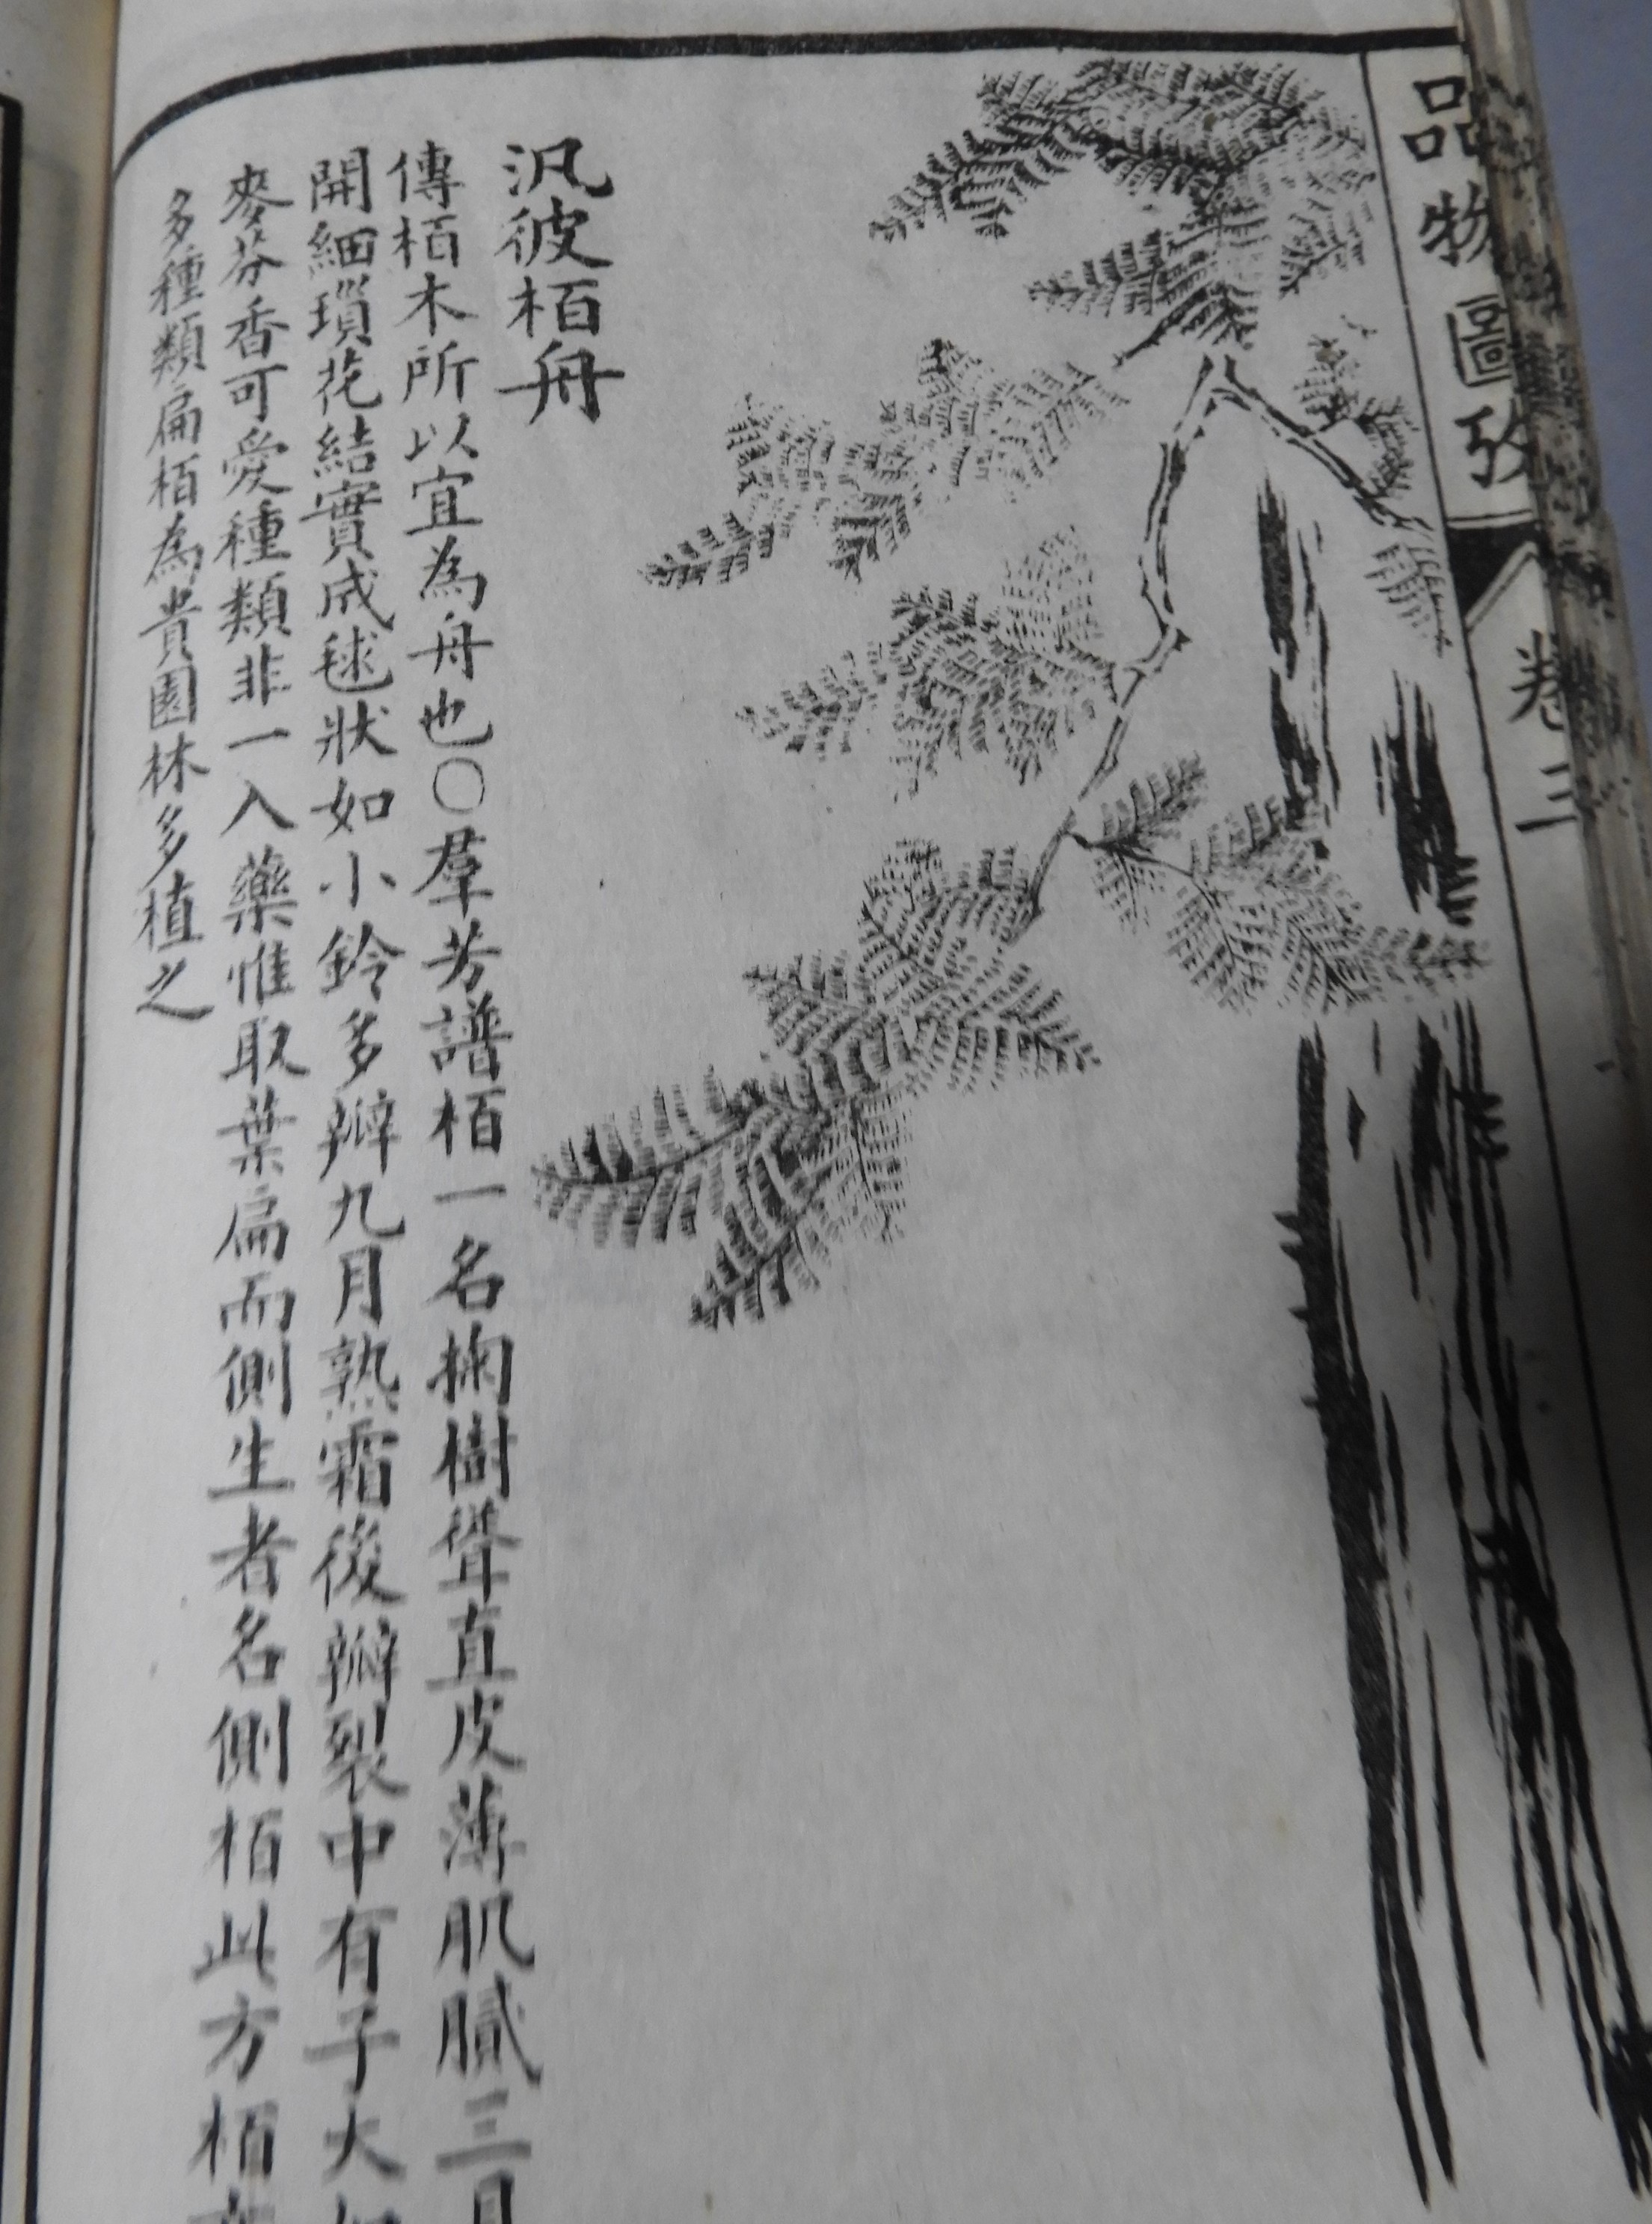 品物圖攷
卷三
汎彼栢舟
傳栢木所以宜為舟也○羣芳譜栢一名掬樹聳直皮薄肌膩三月
開細瑣花結實成毬狀如小鈴多瓣九月熟霜後瓣裂中有子大如
麥芬香可愛種類非一入藥惟取葉扁而側生者名側栢此方栢
多種類扁栢為貴園林多植之